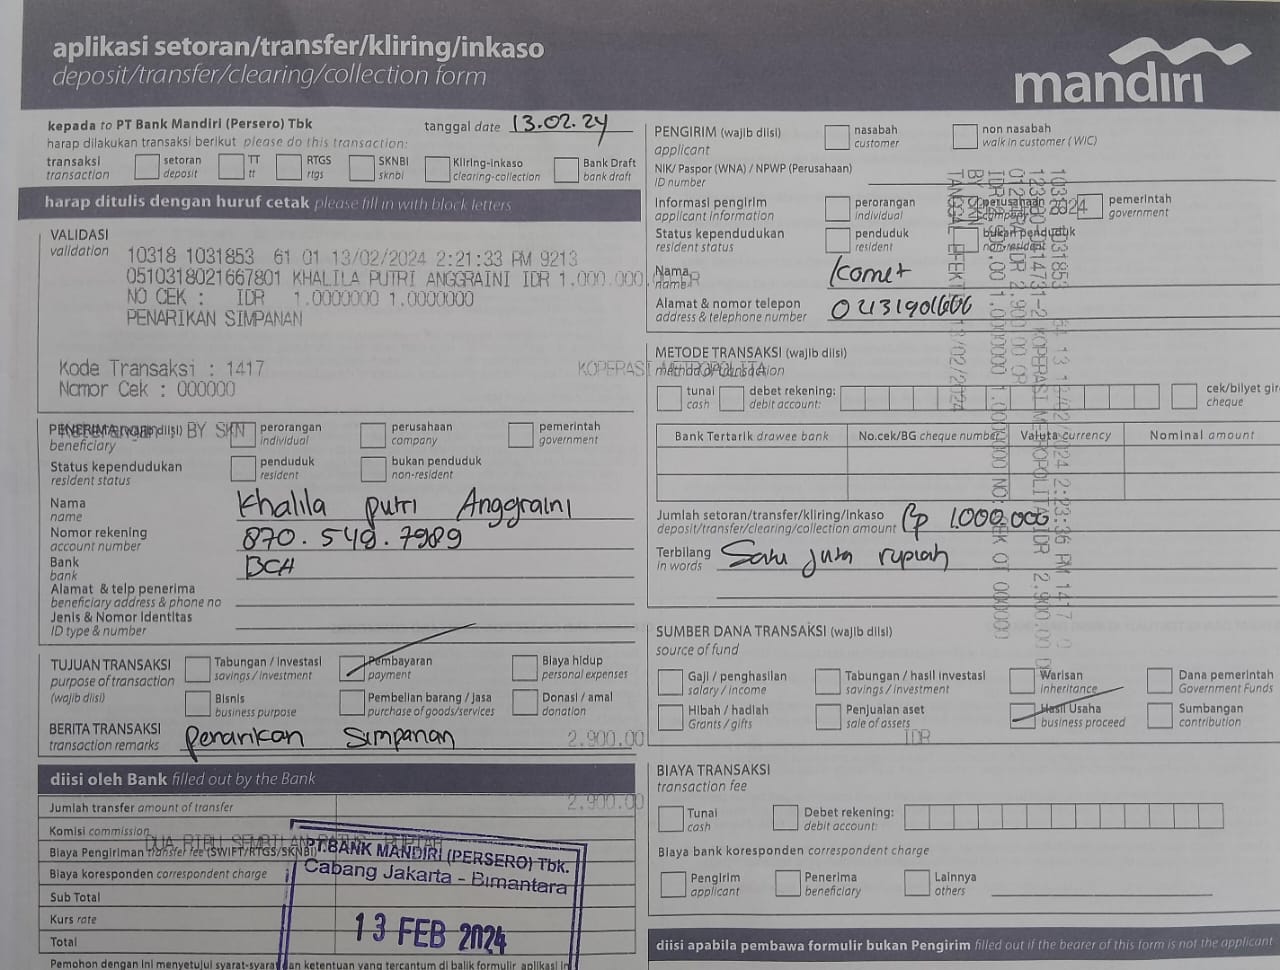 aplikasi setoran/transfer/kliring/inkaso
deposit/transfer/clearing/collection form
mandiri
kepada to PT Bank Mandiri (Persero) Tbk
tanggal date 13.02.24
harap dilakukan transaksi berikut please do this transaction:
transaksi transaction
setoran deposit
TT tt
RTGS rtgs
SKNBI sknbi
Kliring-inkaso clearing-collection
Bank Draft bank draft
harap ditulis dengan huruf cetak please fill in with block letters
VALIDASI
validation
10318 1031853 61 01 13/02/2024 2:21:33 PM 9213
0510318021667801 KHALILA PUTRI ANGGRAINI IDR 1.000.000,
NO CEK : IDR 1.0000000 1.0000000
PENARIKAN SIMPANAN
Kode Transaksi : 1417
Nomor Cek : 000000
KOPERASI METROPOLITA
PENERIMA (wajib diisi)
beneficiary
BY SKN
perorangan individual
perusahaan company
pemerintah government
Status kependudukan
resident status
penduduk resident
bukan penduduk non-resident
Nama
name
Khalila putri Anggraini
Nomor rekening
account number
870.548.7989
Bank
bank
BCA
Alamat & telp penerima
beneficiary address & phone no
Jenis & Nomor Identitas
ID type & number
TUJUAN TRANSAKSI
purpose of transaction
(wajib diisi)
Tabungan / Investasi savings / investment
Pembayaran payment
Biaya hidup personal expenses
Bisnis business purpose
Pembelian barang / jasa purchase of goods/services
Donasi / amal donation
BERITA TRANSAKSI
transaction remarks
Penarikan Simpanan
2.900.00
diisi oleh Bank filled out by the Bank
Jumlah transfer amount of transfer
2.900.00
Komisi commission
DUA RIBU SEMBILAN RATUS RUPIAH
Biaya Pengiriman transfer fee (SWIFT/RTGS/SKNBI)
Biaya koresponden correspondent charge
Sub Total
Kurs rate
Total
PT.BANK MANDIRI (PERSERO) Tbk.
Cabang Jakarta - Bimantara
13 FEB 2024
Pemohon dengan ini menyetujui syarat-syarat dan ketentuan yang tercantum di balik formulir aplikasi in
PENGIRIM (wajib diisi)
applicant
nasabah customer
non nasabah walk in customer (WIC)
NIK/ Paspor (WNA) / NPWP (Perusahaan)
ID number
Informasi pengirim
applicant information
perorangan individual
perusahaan
pemerintah government
Status kependudukan
resident status
penduduk resident
bukan penduduk
Nama
name
Komet
Alamat & nomor telepon
address & telephone number
02131901600
METODE TRANSAKSI (wajib diisi)
method of transaction
tunai cash
debet rekening: debit account:
cek/bilyet gir
cheque
Bank Tertarik drawee bank
No.cek/BG cheque number
Valuta currency
Nominal amount
Jumlah setoran/transfer/kliring/inkaso
deposit/transfer/clearing/collection amount
Rp 1.000.000
Terbilang
in words
Satu juta rupiah
SUMBER DANA TRANSAKSI (wajib diisi)
source of fund
Gaji / penghasilan salary / income
Tabungan / hasil investasi savings / investment
Warisan inheritance
Dana pemerintah Government Funds
Hibah / hadiah Grants / gifts
Penjualan aset sale of assets
Hasil Usaha business proceed
Sumbangan contribution
IDR
BIAYA TRANSAKSI
transaction fee
Tunai cash
Debet rekening: debit account:
Biaya bank koresponden correspondent charge
Pengirim applicant
Penerima beneficiary
Lainnya others
diisi apabila pembawa formulir bukan Pengirim filled out if the bearer of this form is not the applicant